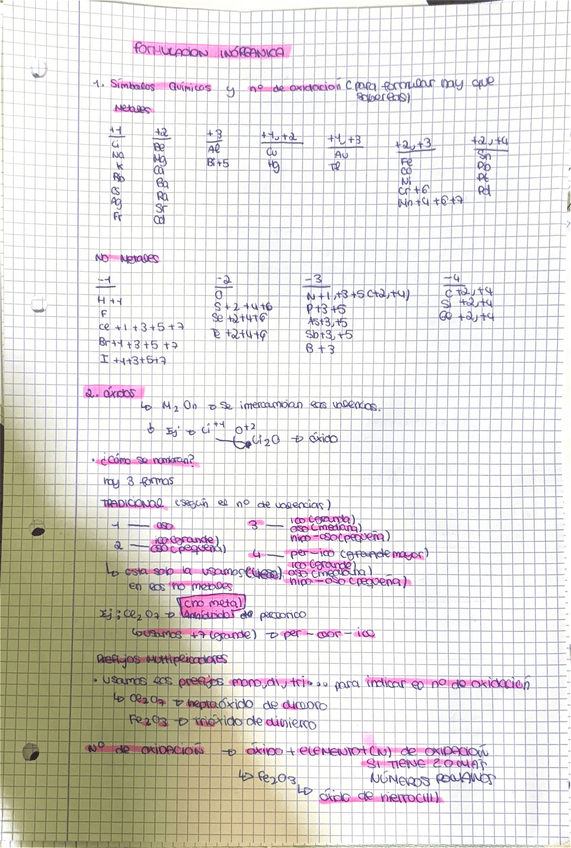 FORMULACION INORGANICA
1. Símbolos Químicos y nº de oxidación (para formular hay que saberlos)
Metales
+1 +2 +3 +1,+2 +1,+3 +2,+3 +2,+4
Li Be Al Cu Au Fe Sn
Na Mg Bi+5 Hg Tl Co Pb
K Ca Ni Pt
Rb Ba Cr+6 Pd
Cs Ra Mn+4+6+7
Ag Sr
Fr Cd
NO Metales
-1 -2 -3 -4
H+1 O N+1,+3+5(+2,+4) C+2,+4
F S+2+4+6 P+3+5 Si+2,+4
Cl+1+3+5+7 Se+2+4+6 As+3,+5 Ge+2,+4
Br+1+3+5+7 Te+2+4+6 Sb+3,+5
I+1+3+5+7 B+3
2. óxidos
↳ M2On → Se intercambian las valencias.
↳ Ej → Li+1 O+2
Li2O → óxido
· ¿Cómo se nombran?
hay 3 formas
TRADICIONAL (según el nº de valencias)
1 — oso
2 — ico(grande)
oso(pequeña)
3 — ico(grande)
oso(mediana)
hipo-oso(pequeña)
4 — per-ico (grande mayor)
ico(grande)
oso(mediana)
hipo-oso(pequeña)
↳ esta solo la usamos
en los no metales
(no metal)
Ej: Cl2O7 → Anhídrido de perclorico
↳usamos +7(grande) → per-clor-ico
Prefijos Multiplicadores
· Usamos los prefijos mono, di, tri... para indicar el nº de oxidación
↳ Cl2O7 → heptaóxido de dicloro
Fe2O3 → trióxido de dihierro
Nº de OXIDACIÓN → óxido + ELEMENTO+(N) de OXIDACIÓN
SI TIENE 2 O MAS
NÚMEROS ROMANOS
↳ Fe2O3
↳ óxido de hierro(III)